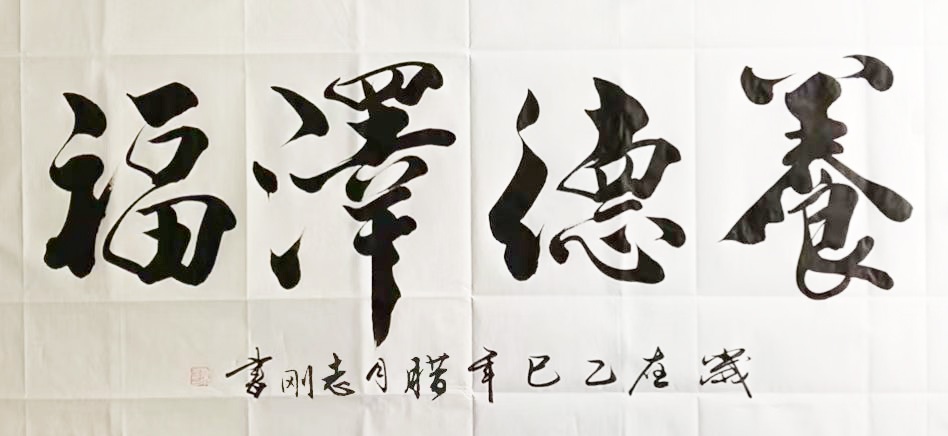 養德澤福
歲在乙巳年腊月志刚書